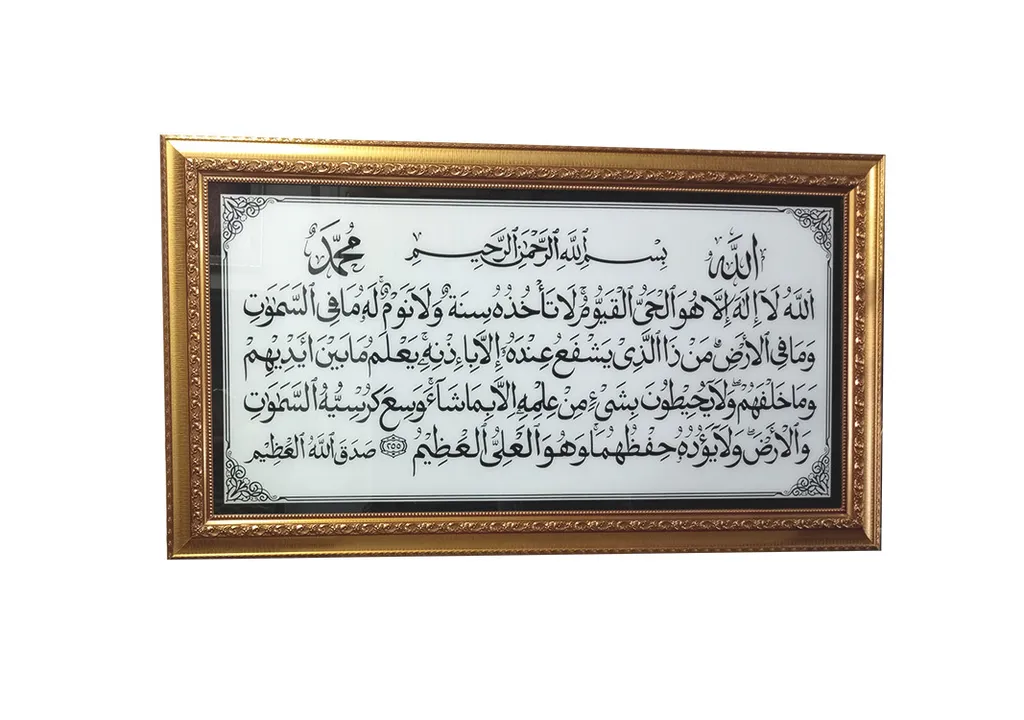 الله بسم الله الرحمن الرحيم محمد
اللَّهُ لَا إِلَٰهَ إِلَّا هُوَ الْحَيُّ الْقَيُّومُ ۚ لَا تَأْخُذُهُ سِنَةٌ وَلَا نَوْمٌ ۚ لَهُ مَا فِي السَّمَٰوَٰتِ
وَمَا فِي الْأَرْضِ ۗ مَنْ ذَا الَّذِي يَشْفَعُ عِنْدَهُ إِلَّا بِإِذْنِهِ ۚ يَعْلَمُ مَا بَيْنَ أَيْدِيهِمْ
وَمَا خَلْفَهُمْ ۖ وَلَا يُحِيطُونَ بِشَيْءٍ مِنْ عِلْمِهِ إِلَّا بِمَا شَاءَ ۚ وَسِعَ كُرْسِيُّهُ السَّمَٰوَٰتِ
وَالْأَرْضَ ۖ وَلَا يَؤُدُهُ حِفْظُهُمَا ۚ وَهُوَ الْعَلِيُّ الْعَظِيمُ ٢٥٥ صَدَقَ اللَّهُ الْعَظِيم